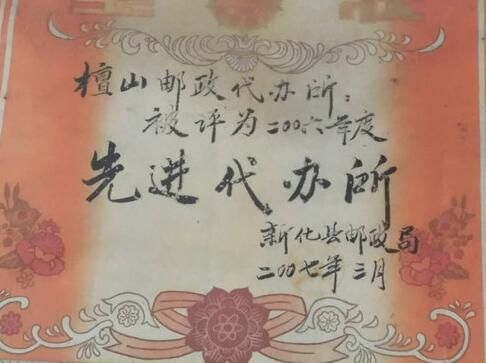 檀山邮政代办所:
被评为二00六年度
先进代办所
新化县邮政局
二00七年三月